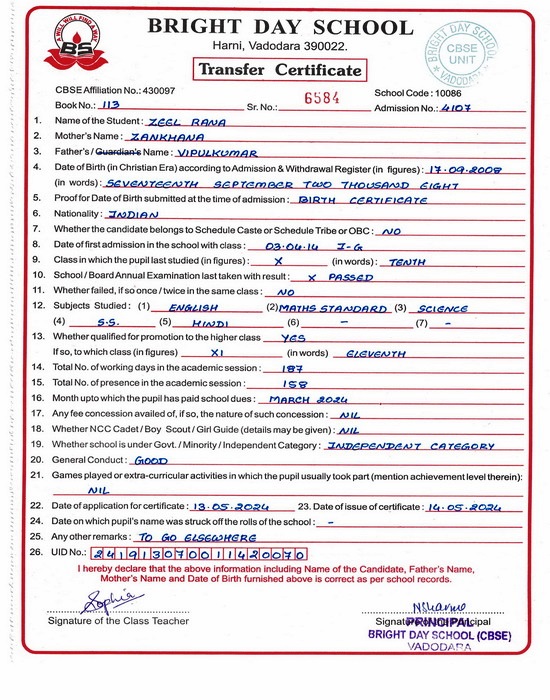 A WILL WILL FIND A WAY
BS
BRIGHT DAY SCHOOL
Harni, Vadodara 390022.
BRIGHT DAY SCHOOL
CBSE
UNIT
VADODARA
Transfer Certificate
CBSE Affiliation No.: 430097 School Code : 10086
Book No.: 113 Sr. No.: 6584 Admission No.: 4107
1. Name of the Student : ZEEL RANA
2. Mother's Name : ZANKHANA
3. Father's / Guardian's Name : VIPULKUMAR
4. Date of Birth (in Christian Era) according to Admission & Withdrawal Register (in figures) : 17.09.2008
(in words) : SEVENTEENTH SEPTEMBER TWO THOUSAND EIGHT
5. Proof for Date of Birth submitted at the time of admission : BIRTH CERTIFICATE
6. Nationality : INDIAN
7. Whether the candidate belongs to Schedule Caste or Schedule Tribe or OBC : NO
8. Date of first admission in the school with class : 03.04.14 I-G
9. Class in which the pupil last studied (in figures) : X (in words) : TENTH
10. School / Board Annual Examination last taken with result : X PASSED
11. Whether failed, if so once / twice in the same class : NO
12. Subjects Studied : (1) ENGLISH (2) MATHS STANDARD (3) SCIENCE
(4) S.S. (5) HINDI (6) - (7) -
13. Whether qualified for promotion to the higher class YES
If so, to which class (in figures) XI (in words) ELEVENTH
14. Total No. of working days in the academic session : 187
15. Total No. of presence in the academic session : 158
16. Month upto which the pupil has paid school dues : MARCH 2024
17. Any fee concession availed of, if so, the nature of such concession : NIL
18. Whether NCC Cadet / Boy Scout / Girl Guide (details may be given) : NIL
19. Whether school is under Govt. / Minority / Independent Category : INDEPENDENT CATEGORY
20. General Conduct : GOOD
21. Games played or extra-curricular activities in which the pupil usually took part (mention achievement level therein):
NIL
22. Date of application for certificate : 13.05.2024 23. Date of issue of certificate : 14.05.2024
24. Date on which pupil's name was struck off the rolls of the school : -
25. Any other remarks : TO GO ELSEWHERE
26. UID No.: 241913070011420070
I hereby declare that the above information including Name of the Candidate, Father's Name,
Mother's Name and Date of Birth furnished above is correct as per school records.
Sophia
Signature of the Class Teacher
Signature of the Principal
PRINCIPAL
BRIGHT DAY SCHOOL (CBSE)
VADODARA